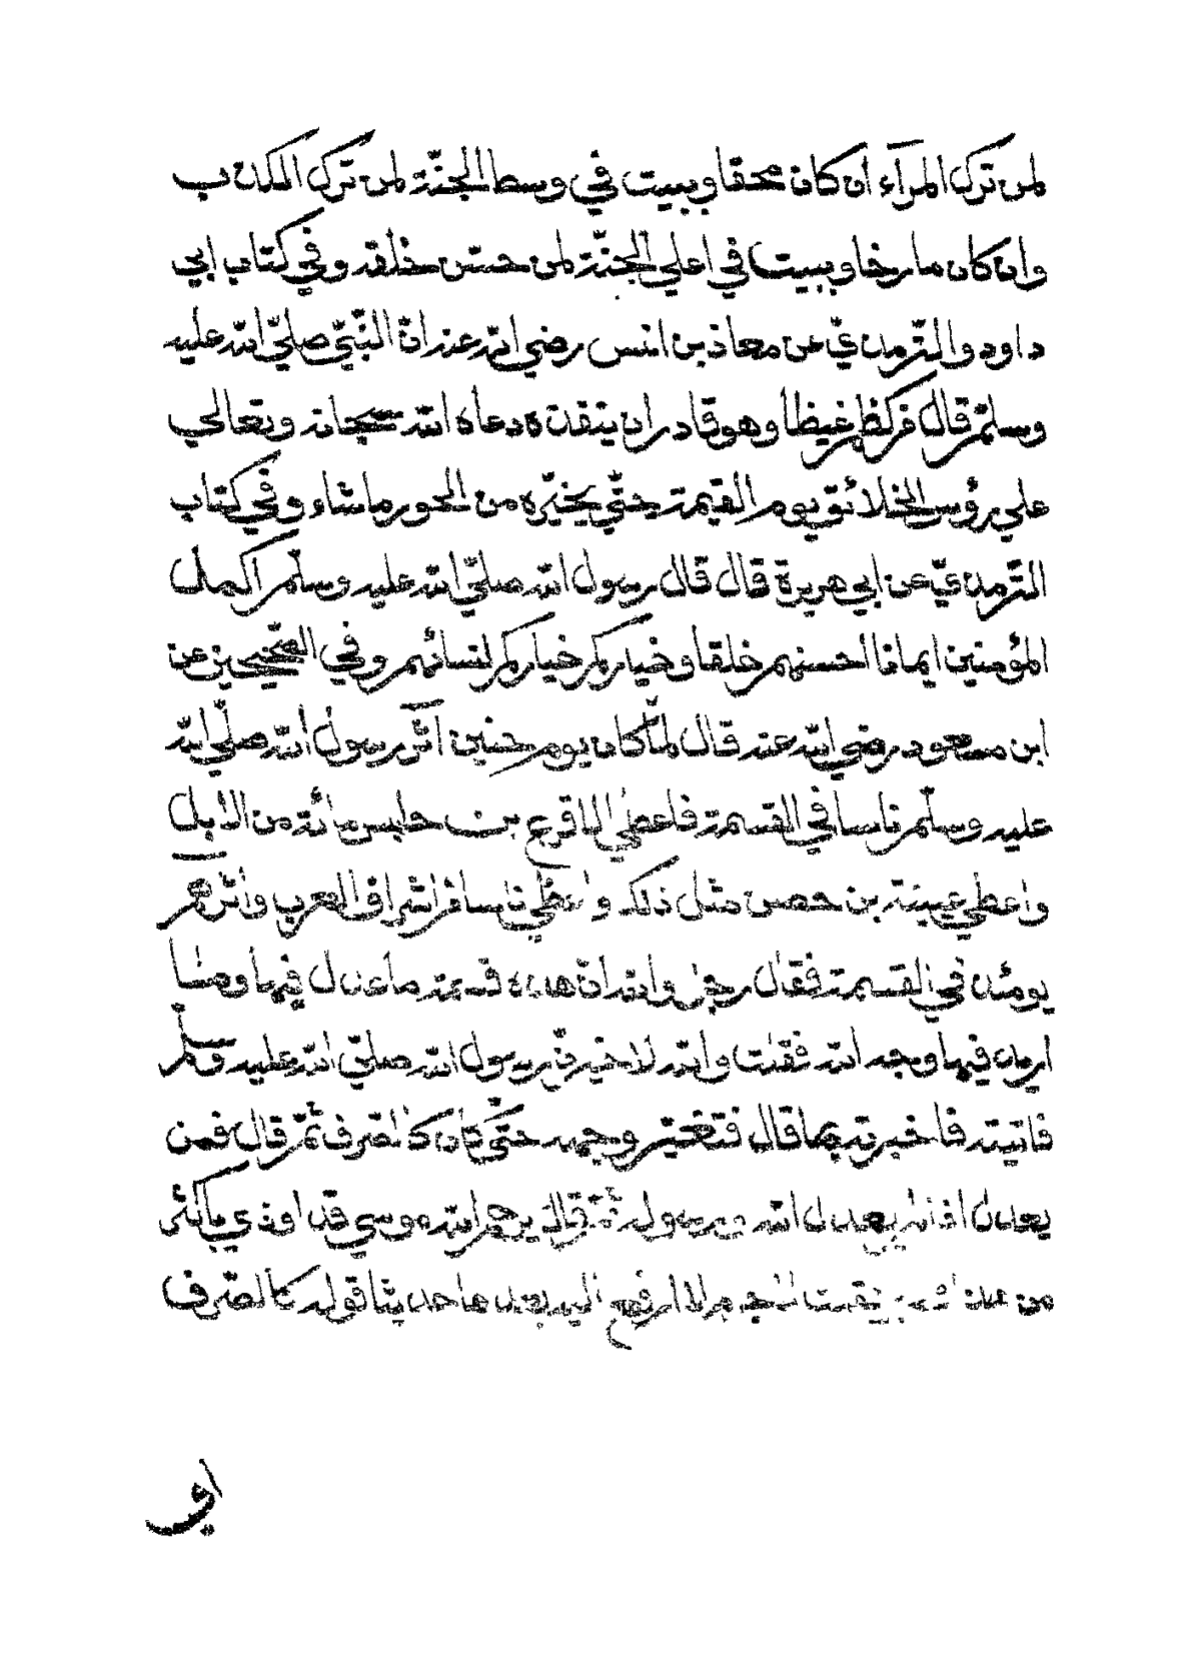 لمن ترك المرآء ان كان محقا وببيت في وسط الجنّة لمن ترك الكذب
وان كان مازحا وببيت في اعلي الجنّة لمن حسن خلقه وفي كتاب ابي
داود والترمذيّ عن معاذ بن انس رضي الله عنه انّ النّبيّ صلّي الله عليه
وسلّم قال من كظم غيظا وهو قادر ان ينفذه دعاه الله سبحانه وتعالي
علي رؤس الخلائق يوم القيمة حتّي يخيّره من الحور ماشاء وفي كتاب
التّرمذيّ عن ابي هريرة قال قال رسول الله صلّي الله عليه وسلّم اكمل
المؤمنين ايمانا احسنهم خلقا وخياركم خياركم لنسائهم وفي الصّحيحين عن
ابن مسعود رضي الله عنه قال لمّا كان يوم حنين آثر رسول الله صلّي الله
عليه وسلّم ناسا في القسمة فاعطي الاقرع بن حابس مائة من الابل
واعطي عيينة بن حصن مثل ذلك واعطي ناسا من اشراف العرب واثرهم
يومئذ في القسمة فقال رجل والله انّ هذه قسمة ما عدل فيها وما
اريد فيها وجه الله فقلت والله لاخبرنّ رسول الله صلّي الله عليه وسلّم
فاتيته فاخبرته بما قال فتغيّر وجهه حتّي كان كالصّرف ثمّ قال فمن
يعدل اذا لم يعدل الله ورسوله ثمّ قال يرحم الله موسي قد اوذي باكثر
من هذا فقلت لاجرم لا ارفع اليه بعدها حديثا قوله كالصّرف